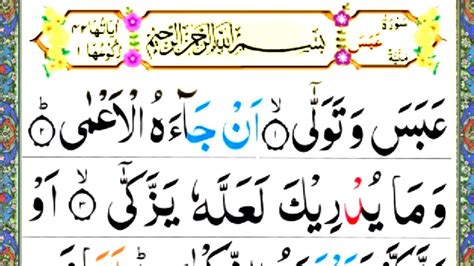 سُوْرَةُ عَبَسَ مَكِّيَّةٌ
بِسْمِ اللّٰهِ الرَّحْمٰنِ الرَّحِيْمِ
اٰيَاتُهَا ٤٢ رُكُوْعُهَا ١
عَبَسَ وَتَوَلّٰىٓ ۙ﴿١﴾ اَنْ جَآءَهُ الْاَعْمٰى ؕ﴿٢﴾
وَمَا يُدْرِيْكَ لَعَلَّهٗ يَزَّكّٰىٓ ۙ﴿٣﴾ اَوْ